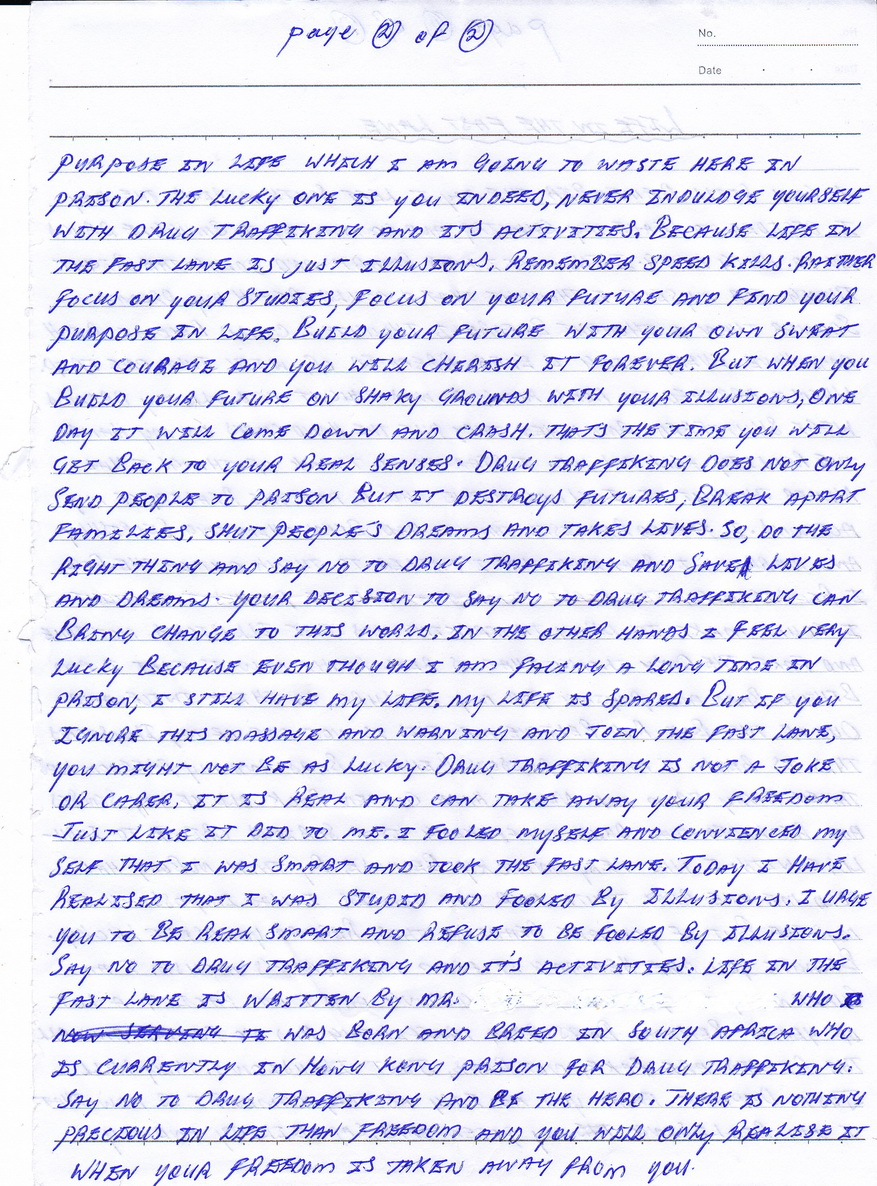 page 2 of 2
No.
Date
PURPOSE IN LIFE WHICH I AM GOING TO WASTE HERE IN
PRISON. THE LUCKY ONE IS YOU INDEED, NEVER INDULDGE YOURSELF
WITH DRUG TRAFFIKING AND ITS ACTIVITIES. BECAUSE LIFE IN
THE FAST LANE IS JUST ILLUSIONS. REMEMBER SPEED KILLS. RATHER
FOCUS ON YOUR STUDIES, FOCUS ON YOUR FUTURE AND FIND YOUR
PURPOSE IN LIFE. BUILD YOUR FUTURE WITH YOUR OWN SWEAT
AND COURAGE AND YOU WILL CHERISH IT FOREVER. BUT WHEN YOU
BUILD YOUR FUTURE ON SHAKY GROUNDS WITH YOUR ILLUSIONS, ONE
DAY IT WILL COME DOWN AND CRASH. THATS THE TIME YOU WILL
GET BACK TO YOUR REAL SENSES. DRUG TRAFFIKING DOES NOT ONLY
SEND PEOPLE TO PRISON BUT IT DESTROYS FUTURES, BREAK APART
FAMILIES, SHUT PEOPLE'S DREAMS AND TAKES LIVES. SO, DO THE
RIGHT THING AND SAY NO TO DRUG TRAFFIKING AND SAVE LIVES
AND DREAMS. YOUR DECISION TO SAY NO TO DRUG TRAFFIKING CAN
BRING CHANGE TO THIS WORLD. IN THE OTHER HANDS I FEEL VERY
LUCKY BECAUSE EVEN THOUGH I AM FACING A LONG TIME IN
PRISON, I STILL HAVE MY LIFE. MY LIFE IS SPARED. BUT IF YOU
IGNORE THIS MASSAGE AND WARNING AND JOIN THE FAST LANE,
YOU MIGHT NOT BE AS LUCKY. DRUG TRAFFIKING IS NOT A JOKE
OR CARER. IT IS REAL AND CAN TAKE AWAY YOUR FREEDOM
JUST LIKE IT DID TO ME. I FOOLED MYSELF AND CONVIENCED MY
SELF THAT I WAS SMART AND TOOK THE FAST LANE. TODAY I HAVE
REALISED THAT I WAS STUPID AND FOOLED BY ILLUSIONS. I URGE
YOU TO BE REAL SMART AND REFUSE TO BE FOOLED BY ILLUSIONS.
SAY NO TO DRUG TRAFFIKING AND IT'S ACTIVITIES. LIFE IN THE
FAST LANE IS WRITTEN BY MR. WHO IS
NOW SERVING IS WAS BORN AND BREED IN SOUTH AFRICA WHO
IS CURRENTLY IN HONG KONG PRISON FOR DRUG TRAFFIKING.
SAY NO TO DRUG TRAFFIKING AND BE THE HERO. THERE IS NOTHING
PRECIOUS IN LIFE THAN FREEDOM AND YOU WILL ONLY REALISE IT
WHEN YOUR FREEDOM IS TAKEN AWAY FROM YOU.